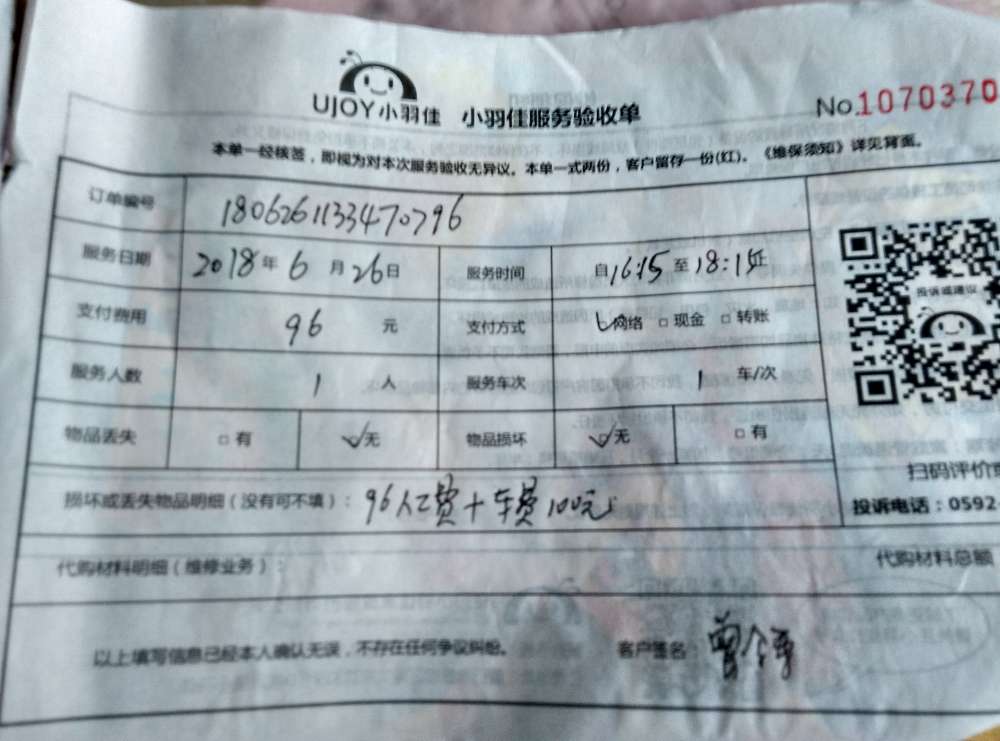 UJOY小羽佳 小羽佳服务验收单 No.1070370
本单一经核签，即视为对本次服务验收无异议。本单一式两份，客户留存一份(红)。《维保须知》详见背面。
订单编号 1806261133470796
服务日期 2018年6月26日 服务时间 自16:15至18:15止
投诉或建议
支付费用 96 元 支付方式 网络 □现金 □转账
服务人数 1 人 服务车次 1 车/次
物品丢失 □有 ☑无 物品损坏 ☑无 □有
扫码评价
损坏或丢失物品明细（没有可不填）：96人工费+车费100元
投诉电话：0592
代购材料明细（维修业务）： 代购材料总额
以上填写信息已经本人确认无误，不存在任何争议纠纷。 客户签名：